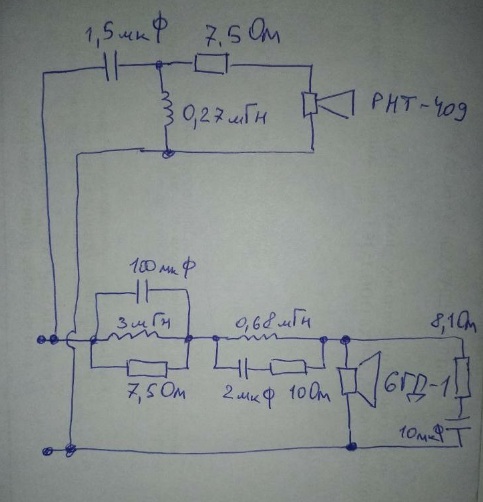 1,5мкФ
7,5Ом
0,27мГн
PHT-409
100мкФ
3мГн
7,5Ом
0,68мГн
2мкФ 10Ом
6ГД-1
8,1Ом
10мкФ